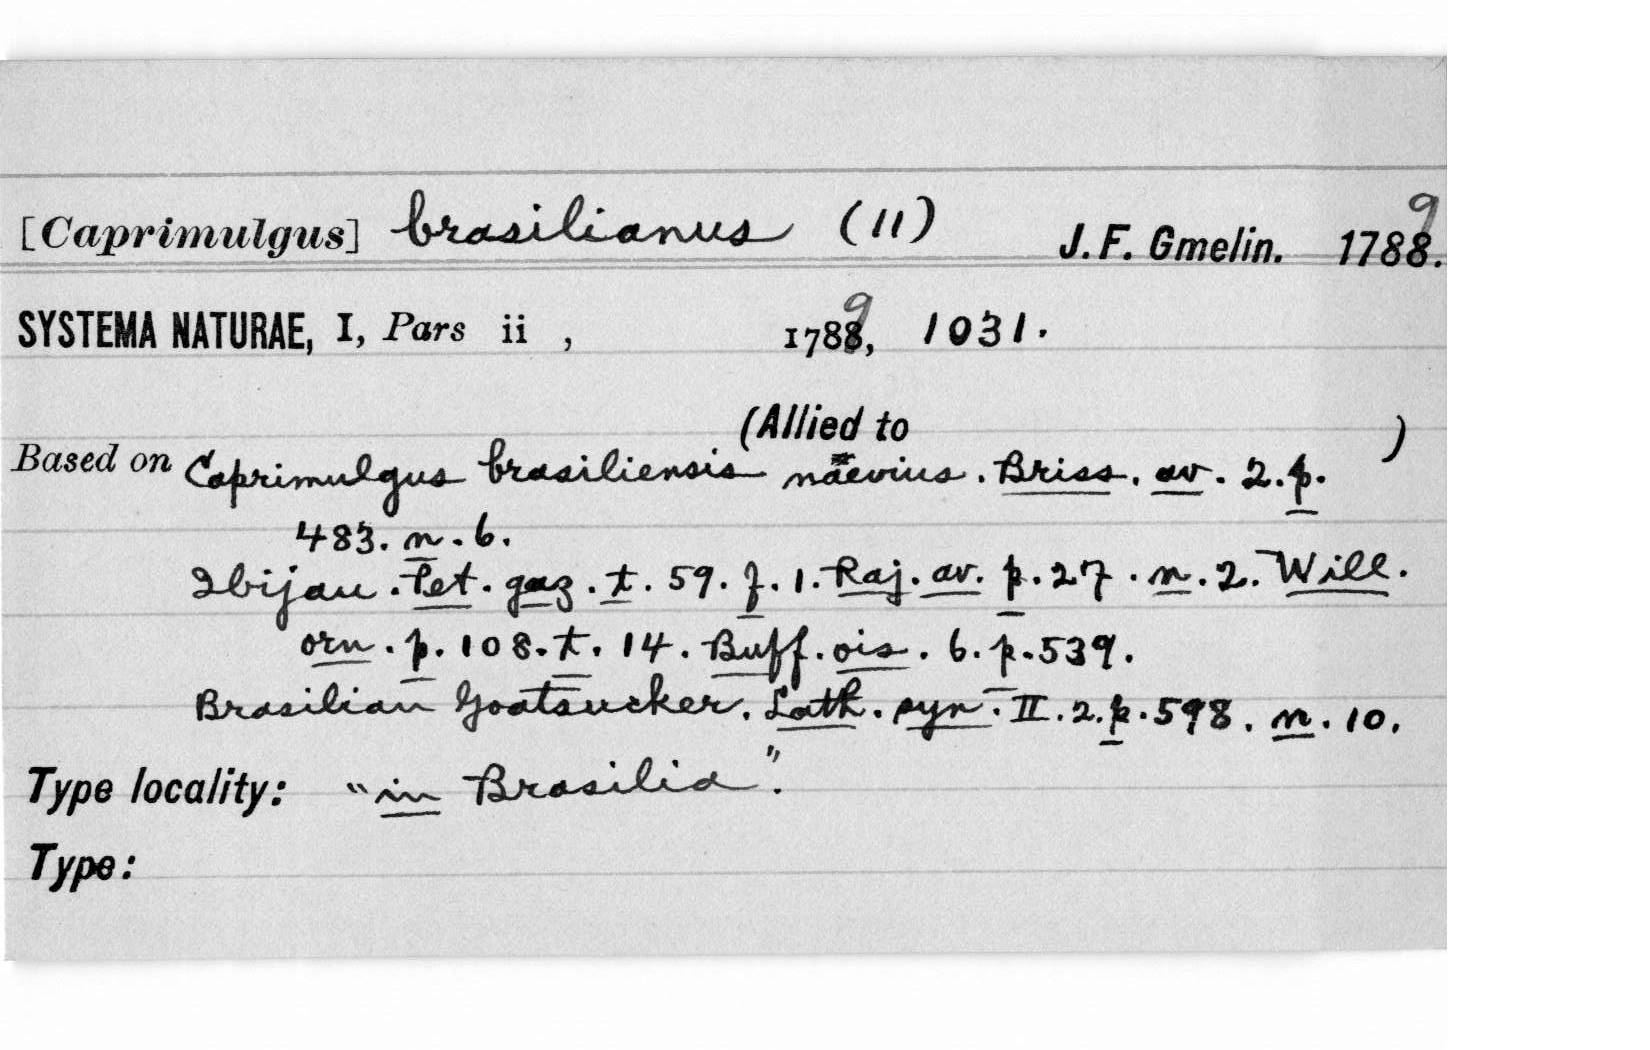 [Caprimulgus] brasilianus (11) J. F. Gmelin. 1789.
SYSTEMA NATURAE, I, Pars ii , 1789, 1031.
(Allied to )
Based on Caprimulgus brasiliensis naevius. Briss. av. 2. p.
483. n. 6.
Ibijau. Pet. gaz. t. 59. f. 1. Raj. av. p. 27. n. 2. Will.
orn. p. 108. t. 14. Buff. ois. 6. p. 539.
Brasilian Goatsucker. Lath. syn. II. 2. p. 598. n. 10.
Type locality: "in Brasilia".
Type: